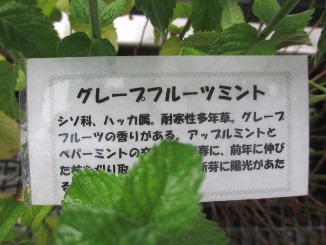 グレープフルーツミント
シソ科、ハッカ属。耐寒性多年草。グレープ
フルーツの香りがある。アップルミントと
ペパーミントの交 春に、前年に伸び
た 刈り取 新芽に陽光があた
る